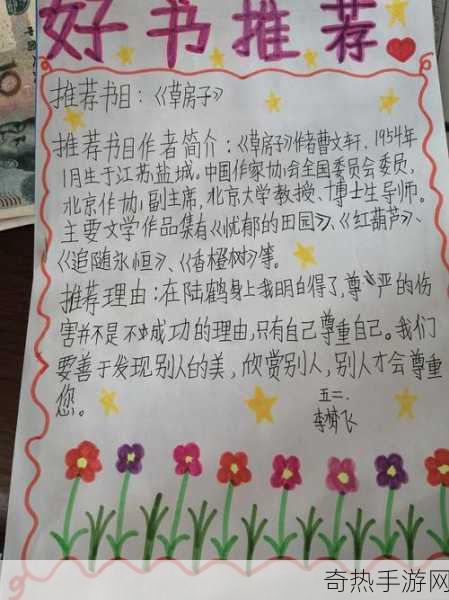 好书推荐
推荐书目：《草房子》
推荐书目作者简介：《草房子》作者曹文轩，1954年
1月生于江苏盐城。中国作家协会全国委员会委员，
北京作协副主席，北京大学教授、博士生导师。
主要文学作品集有《忧郁的田园》、《红葫芦》、
《追随永恒》、《香橙树》等。
推荐理由：在陆鹤身上我明白得了，尊严的伤
害并不是不成功的理由，只有自己尊重自己。我们
要善于发现别人的美，欣赏别人，别人才会尊重
您。
五二.
李梦飞
奇热手游网